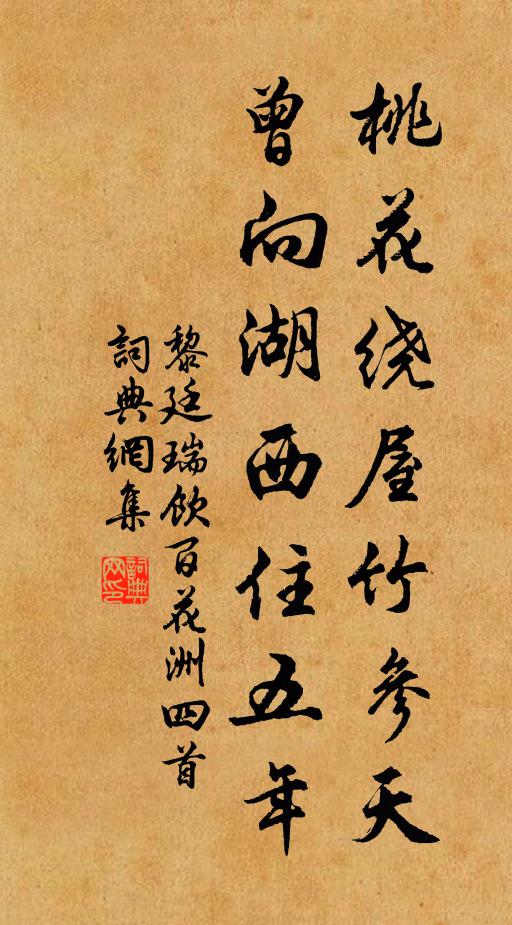 桃花绕屋竹參天
曾向湖西住五年
黎廷瑞飲百花洲四首
詞典網集
詞典網印